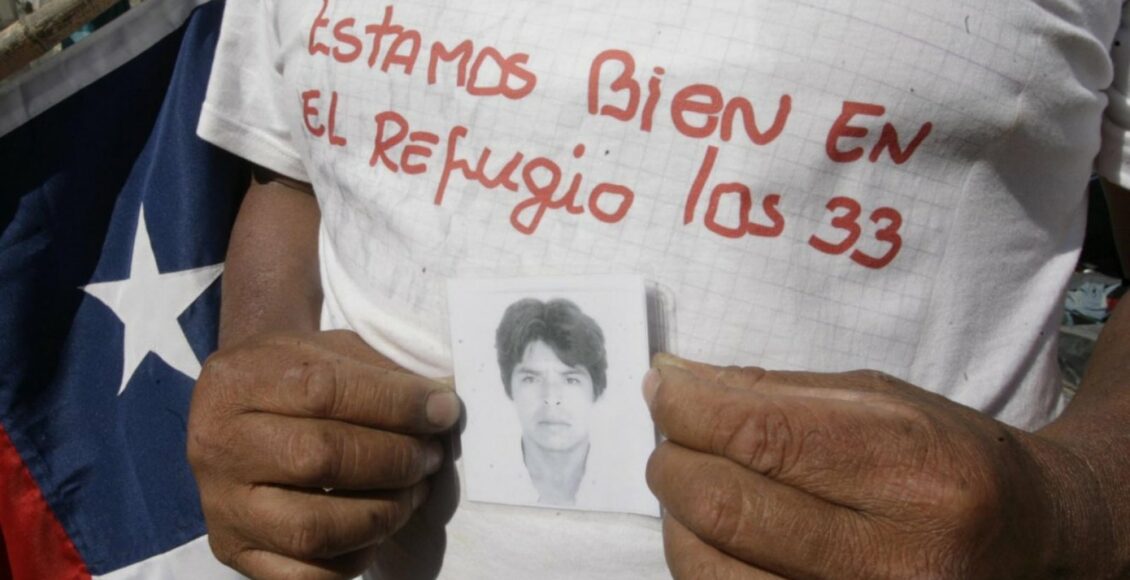 EStAMOS BiEN EN
EL REfugio los 33